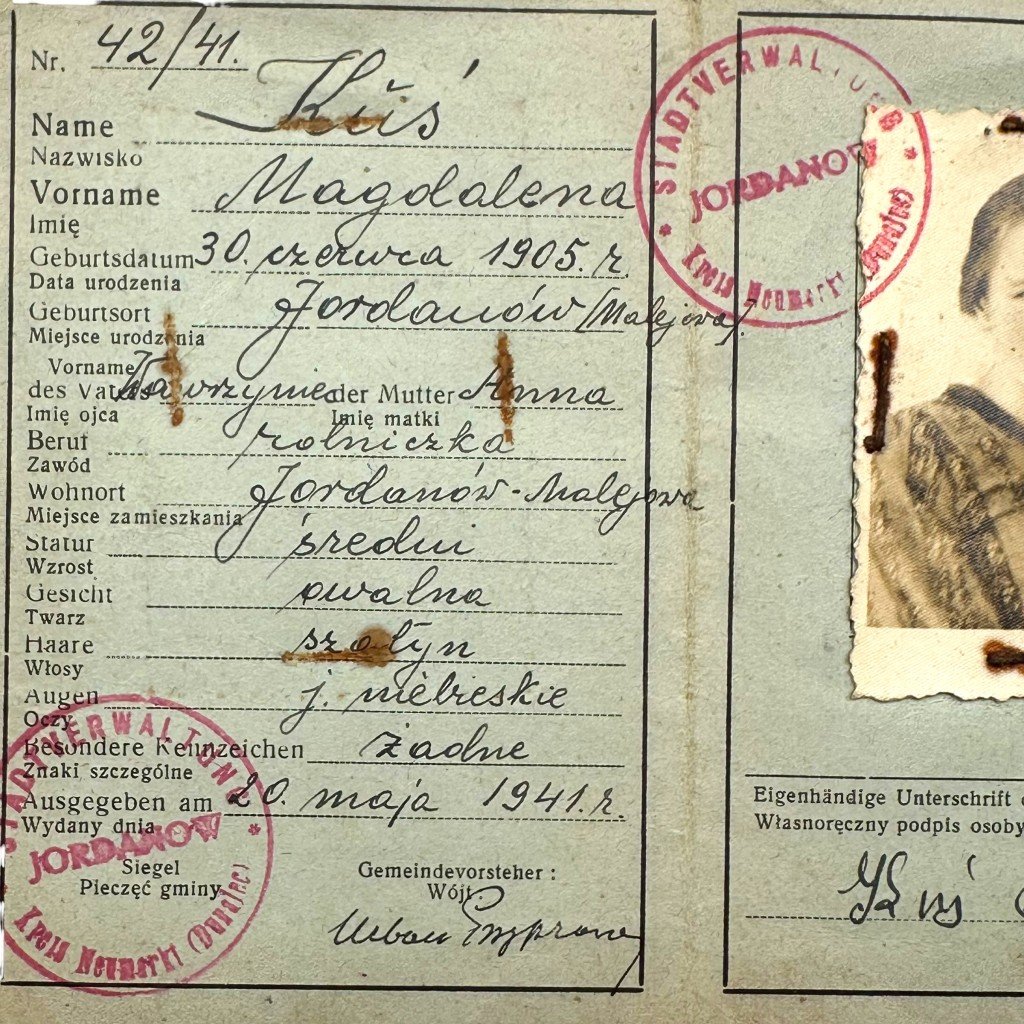 Nr. 42/41.
Name Kuś
Nazwisko
Vorname Magdalena
Imię
Geburtsdatum 30. czerwca 1905. r.
Data urodzenia
Geburtsort Jordanów (Malejowa).
Miejsce urodzenia
Vorname
des Vaters Wawrzyniec der Mutter Anna
Imię ojca Imię matki
Beruf rolniczka
Zawód
Wohnort Jordanów-Malejowa
Miejsce zamieszkania
Statur średni
Wzrost
Gesicht owalna
Twarz
Haare szatyn
Włosy
Augen j. niebieskie
Oczy
Besondere Kennzeichen żadne
Znaki szczególne
Ausgegeben am 20. maja 1941. r.
Wydany dnia
Siegel
Pieczęć gminy
Gemeindevorsteher:
Wójt:
STADTVERWALTUNG
JORDANOW
Kreis Neumarkt (Dunajec)
STADTVERWALTUNG
JORDANOW
Kreis Neumarkt (Dunajec)
Eigenhändige Unterschrift
Własnoręczny podpis osoby
Kuś